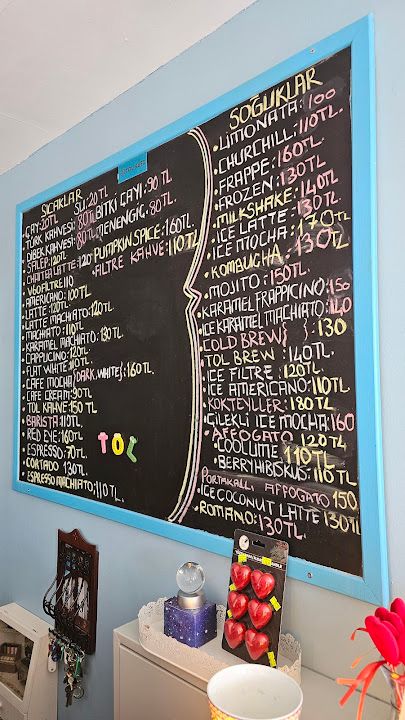 SICAKLAR
ÇAY: 30TL SU: 20 TL
TÜRK KAHVESİ: 80TL BİTKİ ÇAYI: 90 TL
DİBEK KAHVESİ: 80TL MENENGİÇ: 80TL.
SALEP: 120TL
CHAITEA LATTE: 120 PUMPKIN SPICE: 160TL
V60 FILTRE 110 FİLTRE KAHVE: 110TL
AMERICANO: 100TL
LATTE: 120TL
LATTE MACHATO: 120TL
MACHIATO: 110TL
KARAMEL MACHIATO: 130TL.
CAPPUCINO: 120TL.
FLAT WHITE: 110TL
CAFE MOCHA {DARK, WHITE}: 160TL
CAFE CREAM: 90TL
TOL KAHVE: 150 TL
BARISTA: 110TL.
RED EYE: 160TL
ESPRESSO: 70TL.
CORTADO 130TL.
ESPRESSO MACHIATO: 110TL.
TOL
SOĞUKLAR
LIMONATA: 100
CHURCHILL: 110TL.
FRAPPE: 160TL
FROZEN: 130TL
MILKSHAKE: 140TL
ICE LATTE: 130TL
ICE MOCHA: 170TL
KOMBUCHA: 130TL
MOJITO: 150TL.
KARAMEL FRAPPICINO: 150
ICE KARAMEL MACHIATO: 140
COLD BREW { }: 130
TOL BREW: 140TL.
ICE FILTRE: 120TL.
ICE AMERICANO: 110TL
KOKTEYLLER: 180TL
ÇİLEKLİ ICE MOCHA: 160
AFFOGATO 120TL
COOL LIME: 110TL
BERRY HIBISKUS: 110TL
PORTAKALLI AFFOGATO 150
ICE COCONUT LATTE 130TL
ROMANO: 130TL.